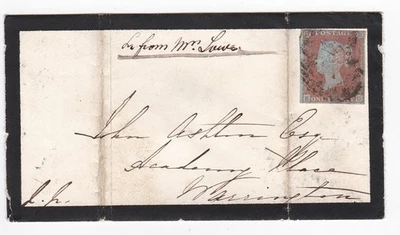 from Mrs Lowe
POSTAGE
John Ashton Esq
Academy Place
Warrington